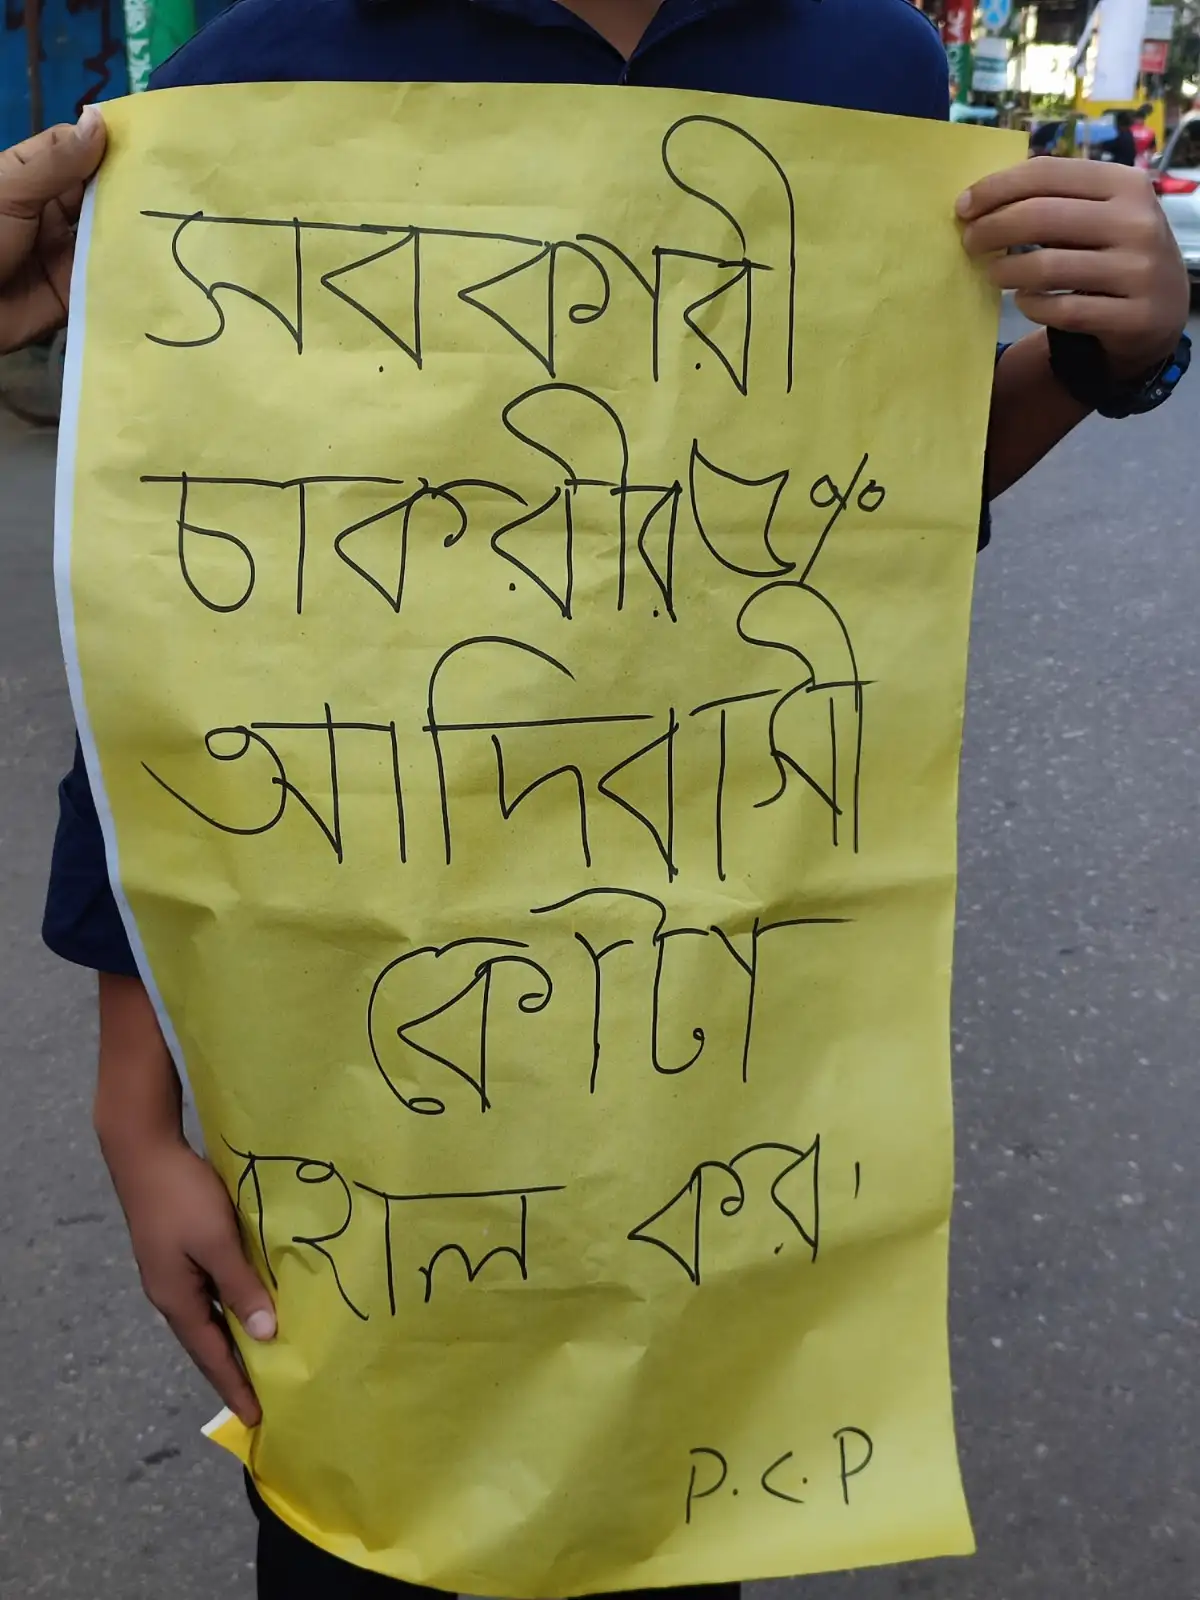 সরকারী
চাকরীর ৫%
আদিবাসী
কোটা
বহাল কর।
P.C.P